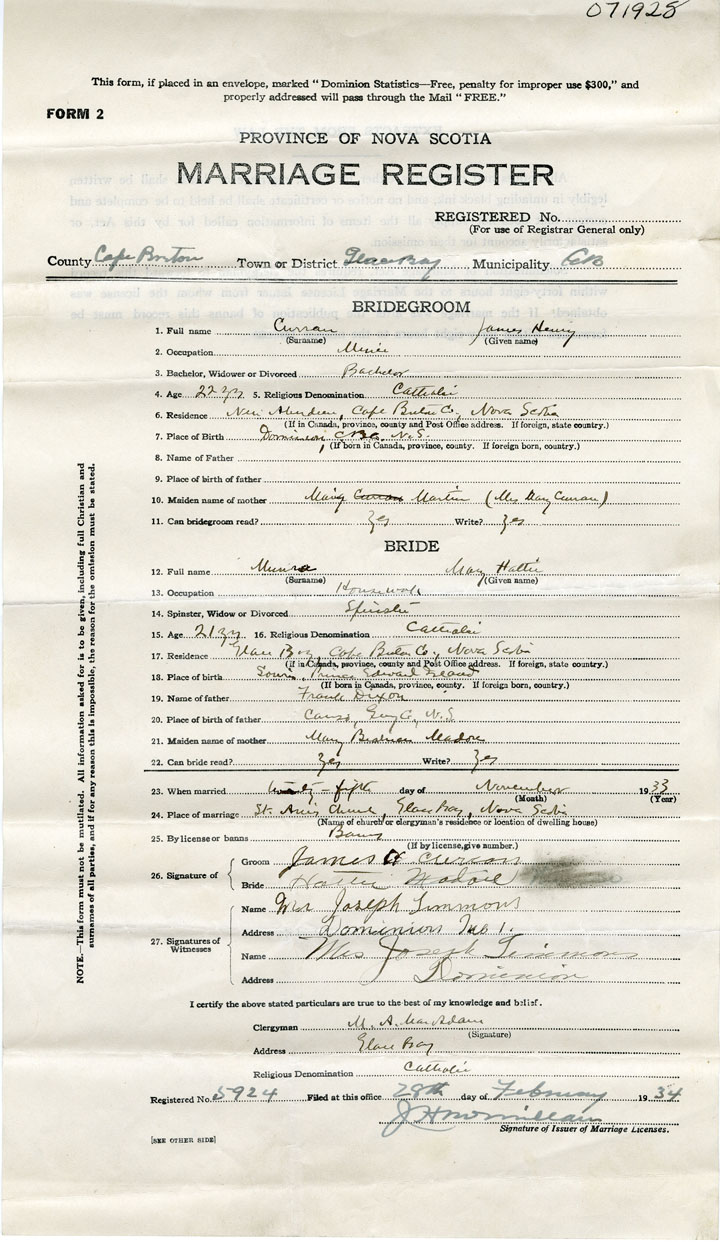 071928
This form, if placed in an envelope, marked "Dominion Statistics—Free, penalty for improper use $300," and
properly addressed will pass through the Mail "FREE."
FORM 2
PROVINCE OF NOVA SCOTIA
MARRIAGE REGISTER
REGISTERED No.
(For use of Registrar General only)
County Cape Breton Town or District Glace Bay Municipality C B
BRIDEGROOM
1. Full name Curran James Henry
(Surname) (Given name)
2. Occupation Miner
3. Bachelor, Widower or Divorced Bachelor
4. Age 22 yrs 5. Religious Denomination Catholic
6. Residence New Aberdeen, Cape Breton Co, Nova Scotia
(If in Canada, province, county and Post Office address. If foreign, state country.)
7. Place of Birth Dominion, C.B. Co. N.S.
(If born in Canada, province, county. If foreign born, country.)
8. Name of Father
9. Place of birth of father
10. Maiden name of mother Mary Curran Martin (Mrs May Curran)
11. Can bridegroom read? Yes Write? Yes
BRIDE
12. Full name Mary Hattie
(Surname) (Given name)
13. Occupation Housework
14. Spinster, Widow or Divorced Spinster
15. Age 21 yrs 16. Religious Denomination Catholic
17. Residence Glace Bay, Cape Breton Co, Nova Scotia
(if in Canada, province, county and Post Office address. If foreign, state country.)
18. Place of birth Souris, Prince Edward Island
(If born in Canada, province, county. If foreign born, country.)
19. Name of father Frank Dixon
20. Place of birth of father Canso, Guy Co, N.S.
21. Maiden name of mother Mary
22. Can bride read? Yes Write? Yes
23. When married twenty-fifth day of November 1933
(Month) (Year)
24. Place of marriage St. Ann's Church, Glace Bay, Nova Scotia
(Name of church or clergyman's residence or location of dwelling house)
25. By license or banns Banns
(If by license, give number.)
26. Signature of Groom James H Curran
Bride Hattie
27. Signatures of Witnesses Name Joseph Simmons
Address Dominion No 1.
Name Mrs Joseph Simmons
Address Dominion
NOTE.—This form must not be mutilated. All information asked for is to be given, including full Christian and
surnames of all parties, and if for any reason this is impossible, the reason for the omission must be stated.
I certify the above stated particulars are true to the best of my knowledge and belief.
Clergyman M. A. MacAdam
(Signature)
Address Glace Bay
Religious Denomination Catholic
Registered No. 5924 Filed at this office 28th day of February 1934
Signature of Issuer of Marriage Licenses.
[SEE OTHER SIDE]